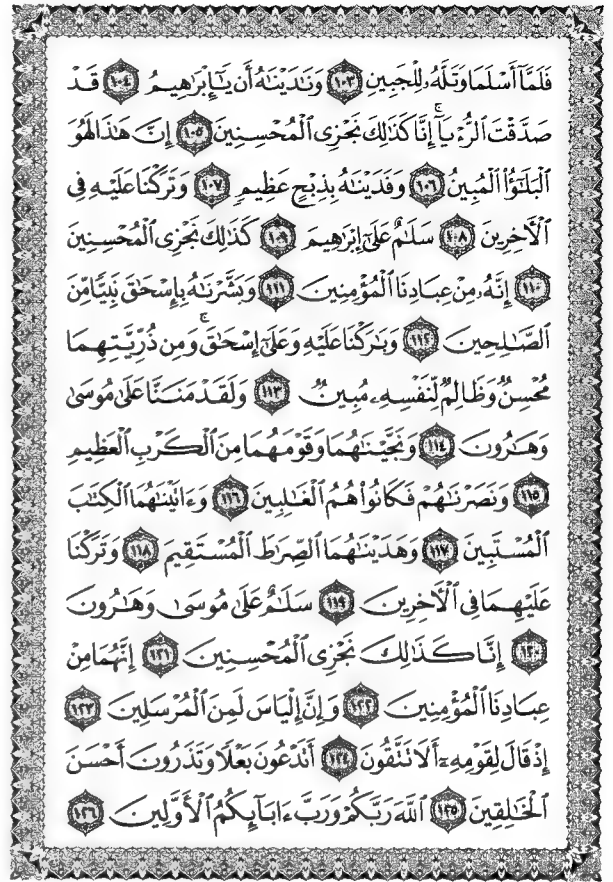 فَلَمَّآ أَسْلَمَا وَتَلَّهُۥ لِلْجَبِينِ ١٠٣ وَنَٰدَيْنَٰهُ أَن يَٰٓإِبْرَٰهِيمُ ١٠٤ قَدْ
صَدَّقْتَ ٱلرُّءْيَآ ۚ إِنَّا كَذَٰلِكَ نَجْزِى ٱلْمُحْسِنِينَ ١٠٥ إِنَّ هَٰذَا لَهُوَ
ٱلْبَلَٰٓؤُا۟ ٱلْمُبِينُ ١٠٦ وَفَدَيْنَٰهُ بِذِبْحٍ عَظِيمٍ ١٠٧ وَتَرَكْنَا عَلَيْهِ فِى
ٱلْأَخِرِينَ ١٠٨ سَلَٰمٌ عَلَىٰٓ إِبْرَٰهِيمَ ١٠٩ كَذَٰلِكَ نَجْزِى ٱلْمُحْسِنِينَ
١١٠ إِنَّهُۥ مِنْ عِبَادِنَا ٱلْمُؤْمِنِينَ ١١١ وَبَشَّرْنَٰهُ بِإِسْحَٰقَ نَبِيًّا مِّنَ
ٱلصَّٰلِحِينَ ١١٢ وَبَٰرَكْنَا عَلَيْهِ وَعَلَىٰٓ إِسْحَٰقَ ۚ وَمِن ذُرِّيَّتِهِمَا
مُحْسِنٌ وَظَالِمٌ لِّنَفْسِهِۦ مُبِينٌ ١١٣ وَلَقَدْ مَنَنَّا عَلَىٰ مُوسَىٰ
وَهَٰرُونَ ١١٤ وَنَجَّيْنَٰهُمَا وَقَوْمَهُمَا مِنَ ٱلْكَرْبِ ٱلْعَظِيمِ
١١٥ وَنَصَرْنَٰهُمْ فَكَانُوا۟ هُمُ ٱلْغَٰلِبِينَ ١١٦ وَءَاتَيْنَٰهُمَا ٱلْكِتَٰبَ
ٱلْمُسْتَبِينَ ١١٧ وَهَدَيْنَٰهُمَا ٱلصِّرَٰطَ ٱلْمُسْتَقِيمَ ١١٨ وَتَرَكْنَا
عَلَيْهِمَا فِى ٱلْأَخِرِينَ ١١٩ سَلَٰمٌ عَلَىٰ مُوسَىٰ وَهَٰرُونَ
١٢٠ إِنَّا كَذَٰلِكَ نَجْزِى ٱلْمُحْسِنِينَ ١٢١ إِنَّهُمَا مِنْ
عِبَادِنَا ٱلْمُؤْمِنِينَ ١٢٢ وَإِنَّ إِلْيَاسَ لَمِنَ ٱلْمُرْسَلِينَ ١٢٣
إِذْ قَالَ لِقَوْمِهِۦٓ أَلَا تَتَّقُونَ ١٢٤ أَتَدْعُونَ بَعْلًا وَتَذَرُونَ أَحْسَنَ
ٱلْخَٰلِقِينَ ١٢٥ ٱللَّهَ رَبَّكُمْ وَرَبَّ ءَابَآئِكُمُ ٱلْأَوَّلِينَ ١٢٦